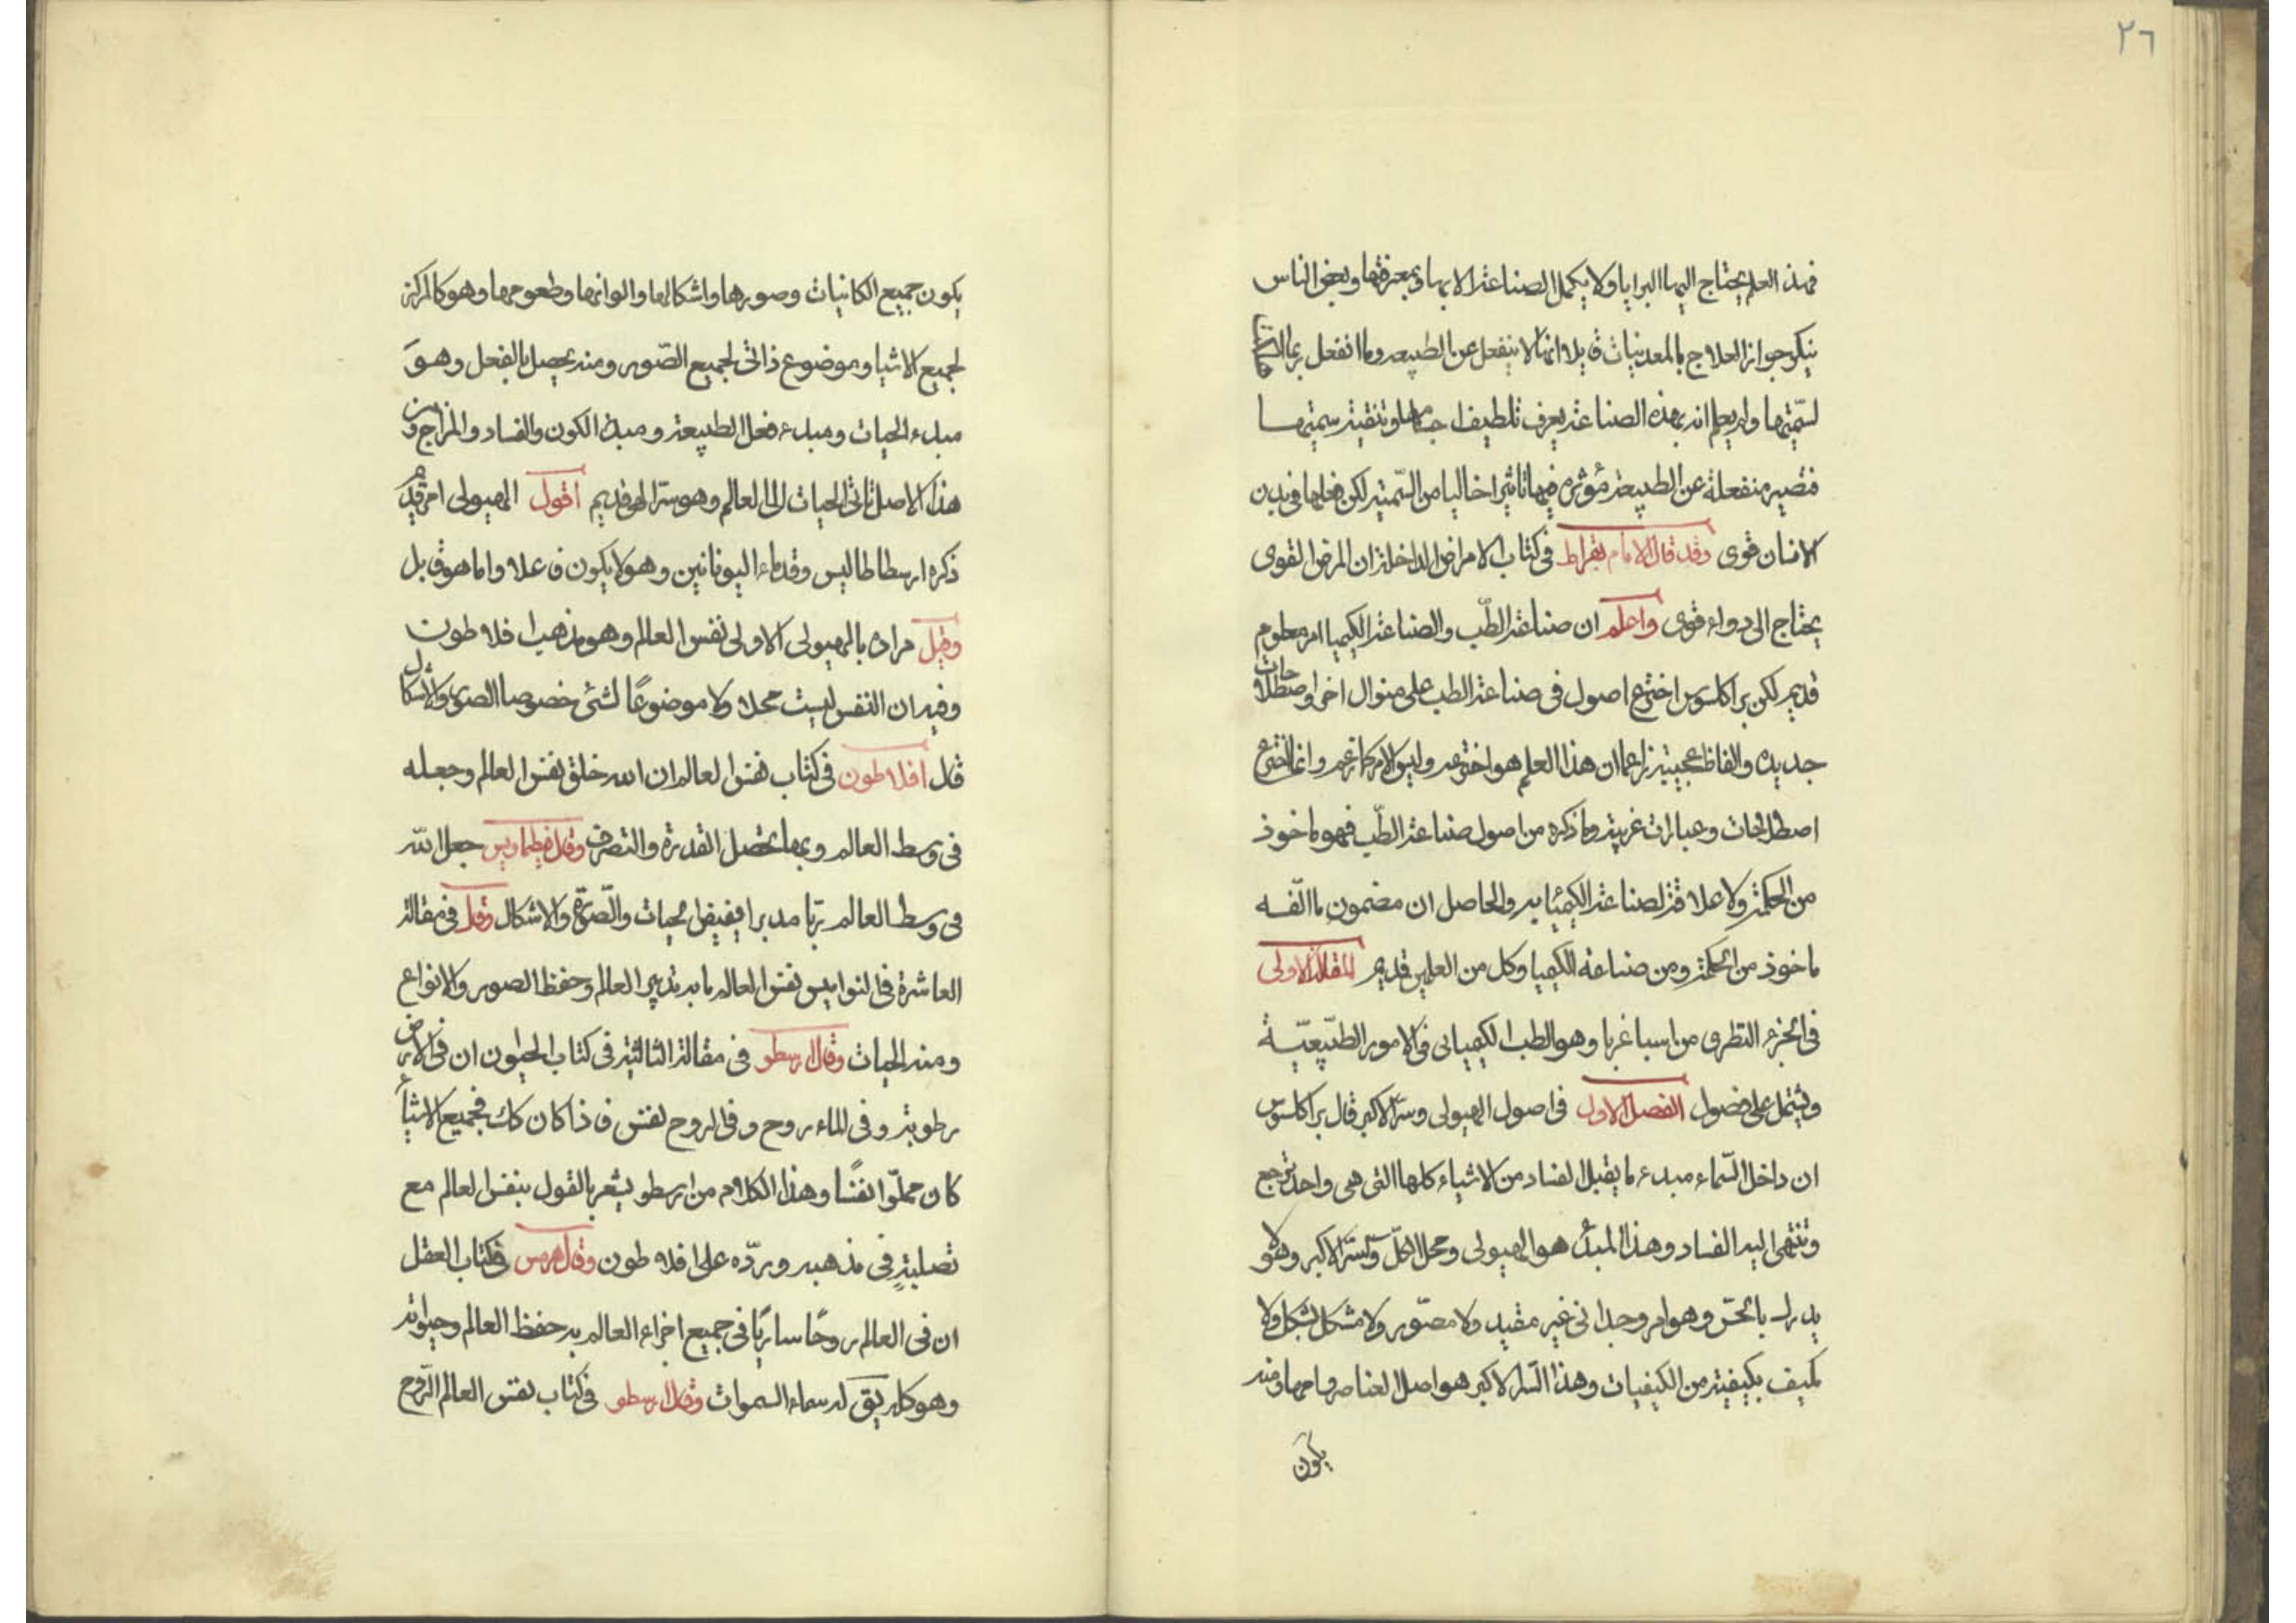 ٢٦
فهذا العلم يحتاج اليها البرايا ولا يكمل الصناعة الا بها وبمعرفتها وبعض الناس
ينكر جواز العلاج بالمعدنيات قايلا انها لا ينفعل عن الطبيعه وما انفعل
لسمّيتها ولم يعلم انه بهذه الصناعة يعرف تلطيف وتنقية سميتها
فتصير منفعلة عن الطبيعة مؤثره فيها تاثيرا خاليا من السّمّية لكن فعلها في بدن
الانسان قوى وقد قال الامام بقراط فى كتاب الامراض الداخلة ان المرض القوى
يحتاج الى دواء قوى واعلم ان صناعة الطّب والصناعة الكيميا امر معلوم
قديم لكن براكلسوس اخترع اصول فى صناعة الطب على منوال اخر واصطلاحات
جديده والفاظ عجيبة زاعما ان هذا العلم هو اخترعه وليس الامر كما زعم وانما اخترع
اصطلاحات وعبارات غريبة وما ذكره من اصول صناعة الطّب فهو ماخوذ
من الحكمة ولا علاقة لصناعة الكيميا به والحاصل ان مضمون ما الّفه
ماخوذ من الحكمة ومن صناعة الكيميا وكل من العلمين قديم المقالة الاولى
فى الجزء النظرى من اسباغريا وهو الطب الكيميائى فى الامور الطبّيعيّة
ويشتمل على فصول الفصل الاول فى اصول الهيولى وسرّ الاكبر قال براكلسوس
ان داخل السّماء مبدء ما يقبل الفساد من الاشياء كلها التى هى واحد ترجع
وتنتهى اليه الفساد وهذا المبدأ هو الهيولى ومحل الكلّ والسّرّ الاكبر وهو لا
يدرك بالحسّ وهو امر وحدانى غير مقيد ولا مصوّر ولا مشكل بشكل ولا
مكيف بكيفية من الكيفيات وهذا السّر الاكبر هو اصل العناصر وامها ومنه
يكون
يكون جميع الكاينات وصورها واشكالها والوانها وطعومها وهو كالمركز
لجميع الاشيا وموضوع ذاتى لجميع الصّور ومنه يحصل بالفعل وهو
مبدء الحيات ومبدء فعل الطبيعة ومبدء الكون والفساد والمزاج ومن
هذا الاصل تاتى الحيات الى العالم وهو سرّ الهى قديم اقول الهيولى امر قديم
ذكره ارسطاطاليس وقدماء اليونانين وهو لا يكون فاعلا وانما هو قابل
وقيل مراده بالهيولى الاولى نفس العالم وهو مذهب افلاطون
وفيه ان النفس ليست محلا ولا موضوعًا لشئ خصوصا الصور والاشكال
قال افلاطون فى كتاب نفس العالم ان الله خلق نفس العالم وجعله
فى وسط العالم وبها تحصل القدرة والتصرف وقال جعل الله
فى وسط العالم ربّا مدبرا يفيض الحيات والصّورة والاشكال وقال فى مقالة
العاشرة فى النواميس نفس العالم ما به تدبير العالم وحفظ الصور والانواع
ومنه الحيات وقال ارسطو فى مقالة الثالثية فى كتاب الحيوان ان فى الارض
رطوبة وفى الماء روح وفى الروح نفس فاذا كان كك فجميع الاشيأ
كان مملوّا نفسًا وهذا الكلام من ارسطو يشعر بالقول بنفس العالم مع
تصلبة فى مذهبه وبردّه على افلاطون وقال هرمس فى كتاب العقل
ان فى العالم روحًا ساريًا فى جميع اجزاء العالم به حفظ العالم وحيوته
وهو كله يق له سماء السموات وقال ارسطو فى كتاب نفس العالم الرّوح